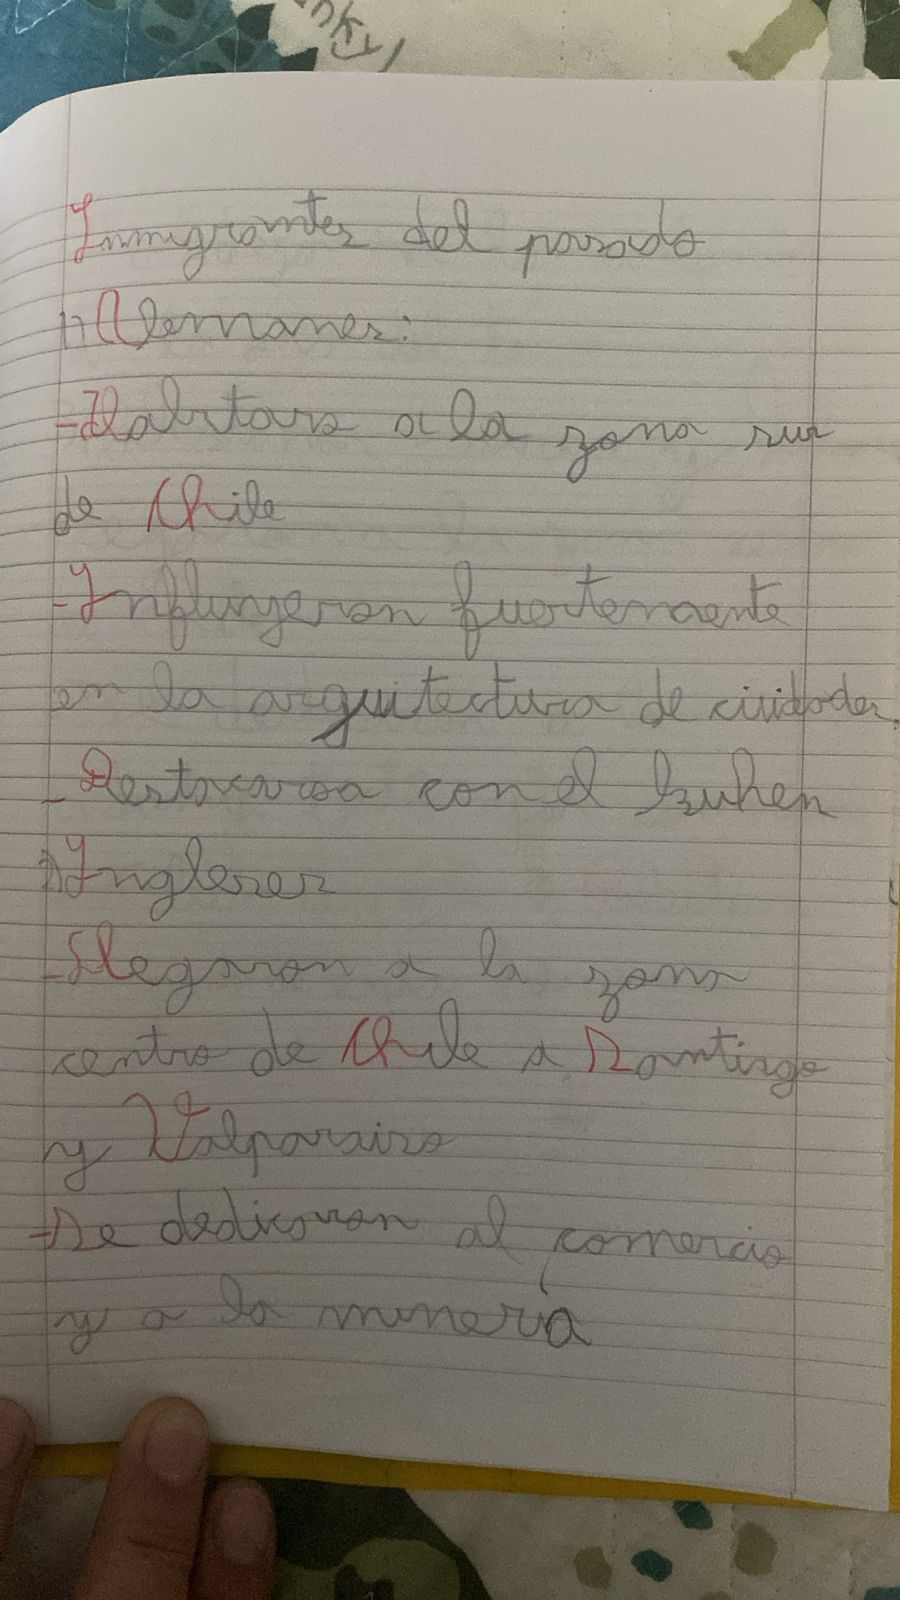 Inmigrantes del pasado
1) Alemanes:
- Habitaro a la zona sur
de Chile
- Influngeron fuertemente
en la arquitectura de ciudades
- Destacaroa con el kuhen
Ingleses
- Llegaron a la zona
centro de Chile a Santiago
y Valparaiso
- Se dedicaron al comercio
y a la mineria